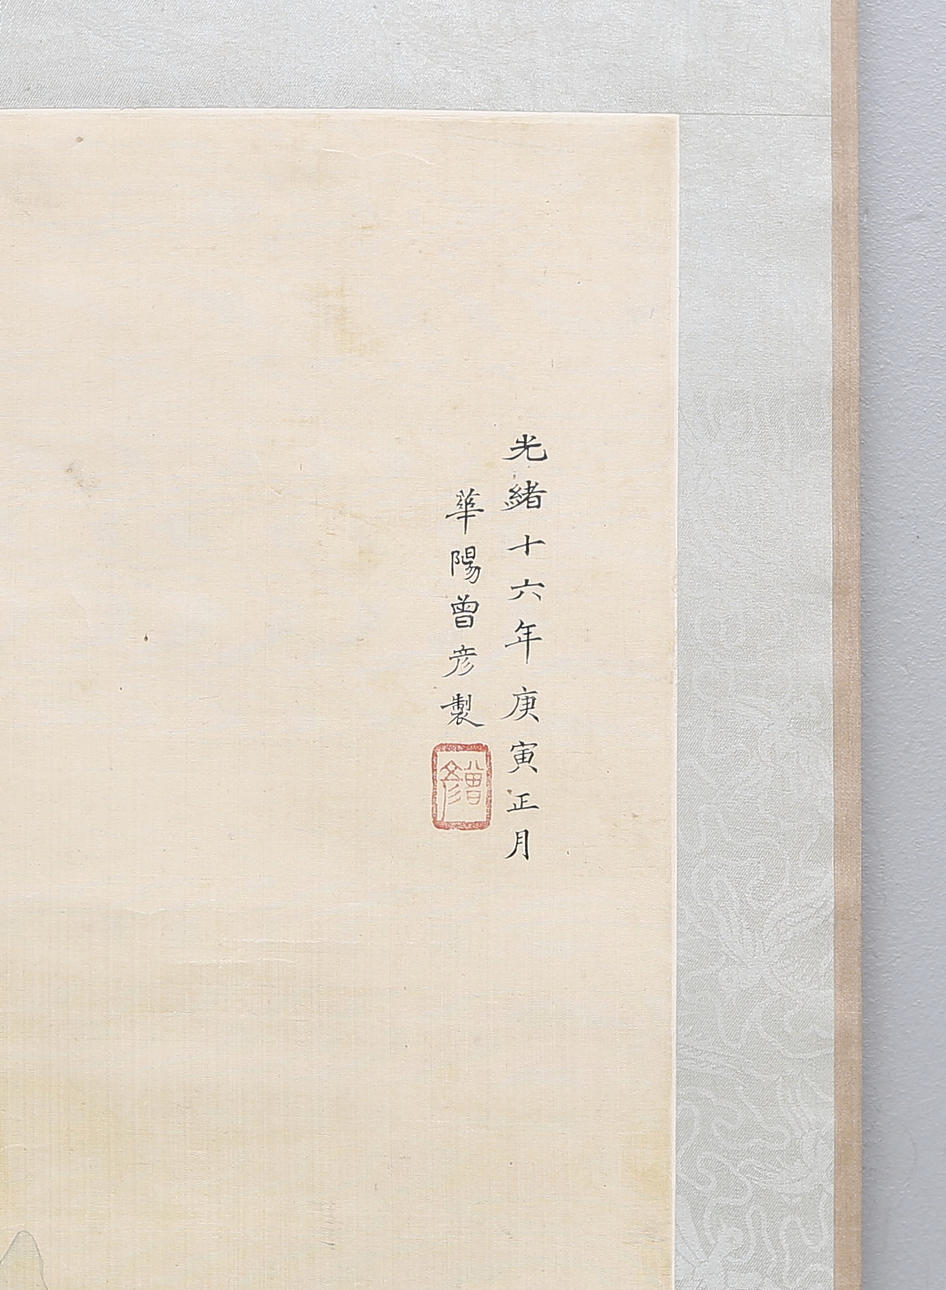 光緒十六年庚寅正月
華陽曾彦製
曾彦